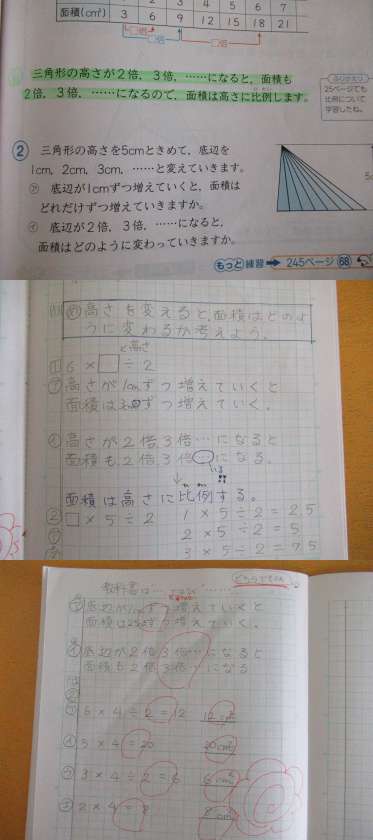 2 3 4 5 6 7
面積(cm²) 3 6 9 12 15 18 21
□倍
□倍 □倍
三角形の高さが2倍，3倍，……になると，面積も
2倍，3倍，……になるので，面積は高さに比例します。
ふりかえり
25ページでも
比例について
学習したね。
2 三角形の高さを5cmときめて，底辺を
1cm，2cm，3cm，……と変えていきます。
㋐ 底辺が1cmずつ増えていくと，面積は
どれだけずつ増えていきますか。
㋑ 底辺が2倍，3倍，……になると，
面積はどのように変わっていきますか。
もっと練習 ➡ 245ページ 68
高さを変えると、面積はどのよ
うに変わるか考えよう。
高さ
1 6×□÷2
㋐ 高さが1cmずつ増えていくと
面積は3cm²ずつ増えていく。
㋑ 高さが2倍、3倍…になると
面積も、2倍、3倍…になる。
いる
面積は高さに比例する。
2 □×5÷2 1×5÷2=2.5
2×5÷2=5
3×5÷2=7.5
教科書は…
㋐ 底辺が1cmずつ増えていくと
面積は2.5cm²ずつ増えていく。
㋑ 底辺が2倍、3倍…になると
面積も2倍3倍…になる
6×4÷2=12 12cm²
5×4=20 20cm²
3×4÷2=6 6cm²
2×4=8 8cm²